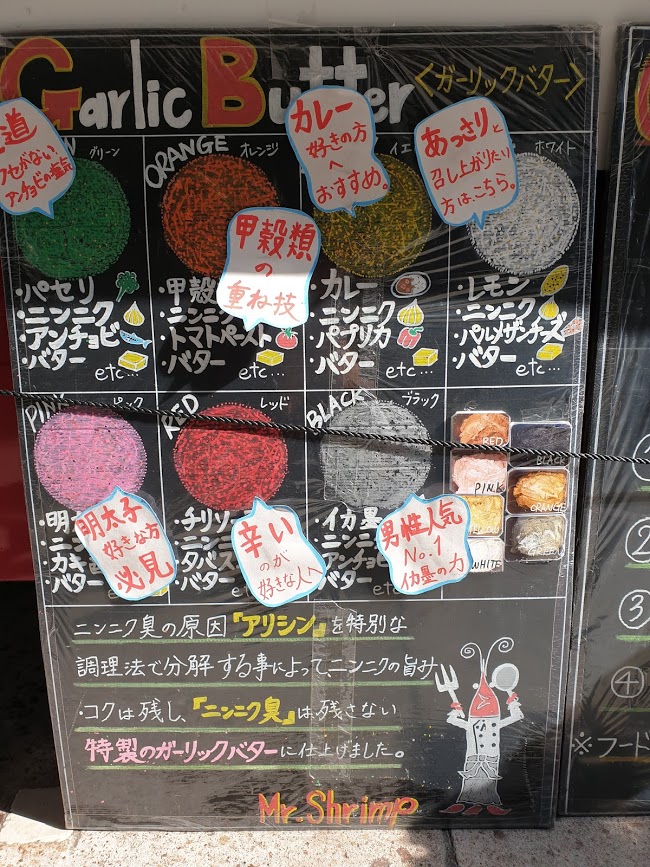 Garlic Butter
<ガーリックバター>
道
クセがない
アンチョビの塩気
グリーン
・パセリ
・ニンニク
・アンチョビ
・バター
etc…
ORANGE
オレンジ
甲殻類
の
重ね技
・甲殻
・ニンニク
・トマトペースト
・バター
etc…
カレー
好きの方
へ
おすすめ。
イエ
・カレー
・ニンニク
・パプリカ
・バター
etc…
あっさりと
召し上がりたい
方は、こちら。
ホワイト
・レモン
・ニンニク
・パルメザンチーズ
・バター
etc…
PINK
ピンク
・明
・ニン
・カキ
・バター
明太子
好きな方
必見
RED
レッド
・チリソー
・ニン
・タバス
・バタ
辛い
のが
好きな人へ
BLACK
ブラック
・イカ墨
・ニン
・アンチョビ
・バター
etc…
男性人気
No.1
イカ墨の力
RED
BLACK
PINK
ORANGE
GREEN
WHITE
ニンニク臭の原因『アリシン』を特別な
調理法で分解する事によって、ニンニクの旨み
・コクは残し、『ニンニク臭』は残さない
特製のガーリックバターに仕上げました。
Mr.Shrimp
②
③
④
※フード